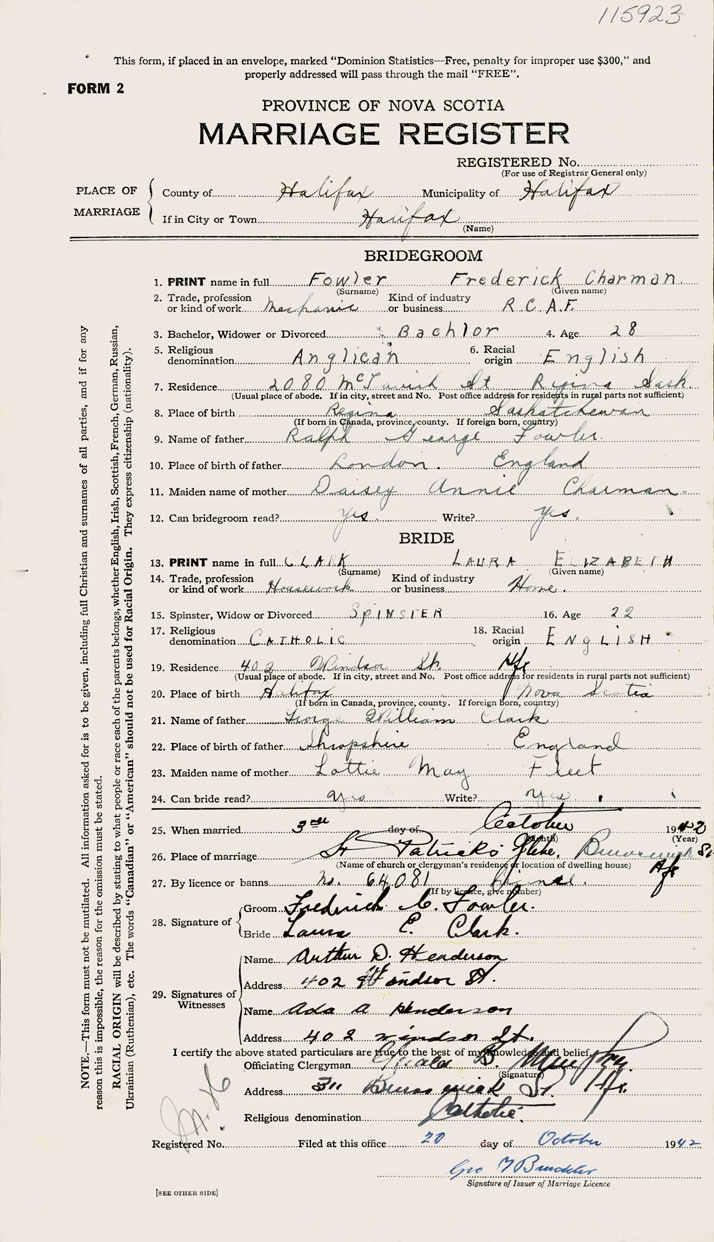 115923
This form, if placed in an envelope, marked "Dominion Statistics—Free, penalty for improper use $300," and
properly addressed will pass through the mail "FREE".
FORM 2
PROVINCE OF NOVA SCOTIA
MARRIAGE REGISTER
REGISTERED No.
(For use of Registrar General only)
PLACE OF MARRIAGE
County of Halifax Municipality of Halifax
If in City or Town Halifax
(Name)
BRIDEGROOM
1. PRINT name in full Fowler Frederick Charman.
(Surname) (Given name)
2. Trade, profession or kind of work Mechanic Kind of industry or business R.C.A.F.
3. Bachelor, Widower or Divorced Bachlor 4. Age 28
5. Religious denomination Anglican 6. Racial origin English
7. Residence 2080 McTavish St Regina Sask.
(Usual place of abode. If in city, street and No. Post office address for residents in rural parts not sufficient)
8. Place of birth Regina Saskatchewan
(If born in Canada, province, county. If foreign born, country)
9. Name of father Ralph George Fowler.
10. Place of birth of father London. England
11. Maiden name of mother Daisey Annie Charman.
12. Can bridegroom read? yes. Write? yes.
BRIDE
13. PRINT name in full CLARK LAURA ELIZABETH
(Surname) (Given name)
14. Trade, profession or kind of work Housework Kind of industry or business Home.
15. Spinster, Widow or Divorced SPINSTER 16. Age 22
17. Religious denomination CATHOLIC 18. Racial origin ENGLISH
19. Residence 402 Windsor St. Hfx
(Usual place of abode. If in city, street and No. Post office address for residents in rural parts not sufficient)
20. Place of birth Halifax Nova Scotia
(If born in Canada, province, county. If foreign born, country)
21. Name of father George William Clark
22. Place of birth of father Shropshire England
23. Maiden name of mother Lottie May Fleet
24. Can bride read? yes Write? yes.
25. When married 3rd day of October 1942
(Month) (Year)
26. Place of marriage St Patricks Glebe, Brunswick St
(Name of church or clergyman's residence or location of dwelling house) Hfx
27. By licence or banns No. 64081
(If by licence, give number)
28. Signature of
Groom Frederick C. Fowler.
Bride Laura E. Clark.
29. Signatures of Witnesses
Name Arthur D. Henderson
Address 402 Windsor St.
Name Ada A Henderson
Address 402 Windsor St.
I certify the above stated particulars are true to the best of my knowledge and belief.
Officiating Clergyman Gerald B. Murphy
(Signature)
Address 311 Brunswick St. Hfx.
Religious denomination Catholic.
Registered No. Filed at this office 20 day of October 1942
Geo
Signature of Issuer of Marriage Licence
[SEE OTHER SIDE]
NOTE.—This form must not be mutilated. All information asked for is to be given, including full Christian and surnames of all parties, and if for any
reason this is impossible, the reason for the omission must be stated.
RACIAL ORIGIN will be described by stating to what people or race each of the parents belongs, whether English, Irish, Scottish, French, German, Russian,
Ukrainian (Ruthenian), etc. The words "Canadian" or "American" should not be used for Racial Origin. They express citizenship (nationality).